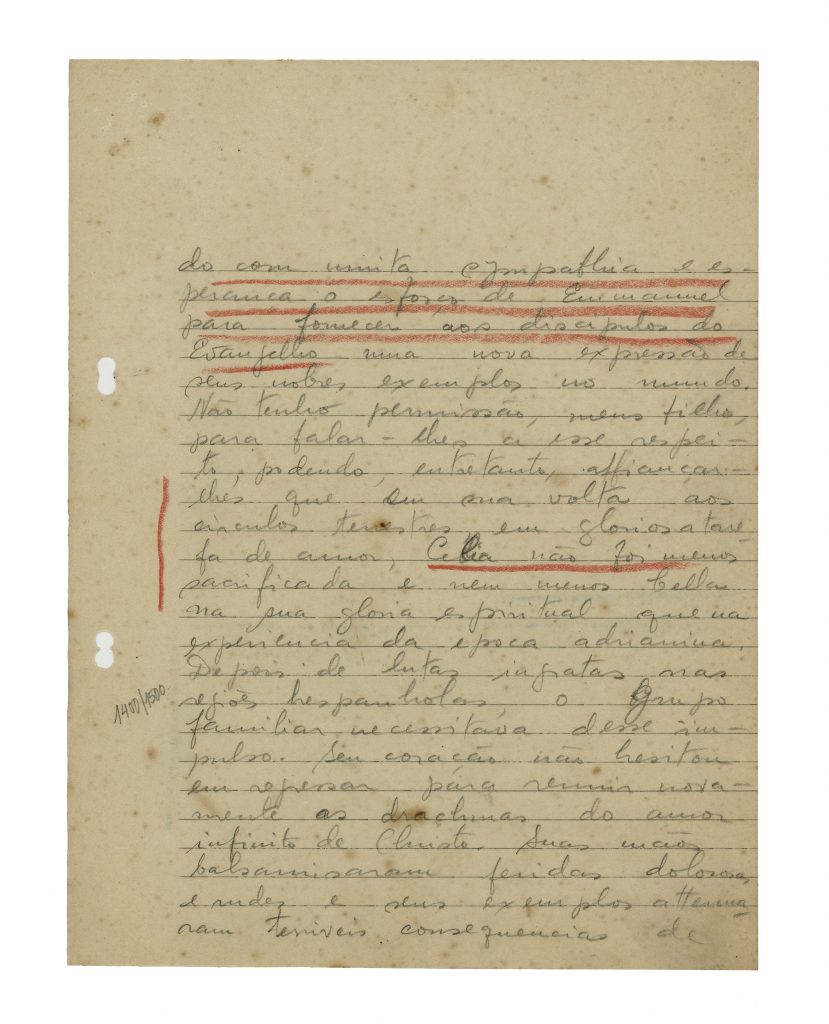 do com muita sympathia e es-
perança o esforço de Emmanuel
para fornecer aos discipulos do
Evangelho uma nova expressão de
seus nobres exemplos no mundo.
Não tenho permissão, meus filho,
para falar-lhes a esse respei-
to, podendo, entretanto, affiançar-
lhes que em sua volta aos
circulos terrestres, em gloriosa tare
fa de amor, Celia não foi menos
sacrificada e nem menos bella
na sua gloria espiritual que na
experiencia da epoca adrianina.
Depois de lutas ingratas nas
regiões hespanholas, o Grupo
familiar necessitava desse im-
pulso. Seu coração não hesitou
em regressar para reunir nova-
mente as drachmas do amor
infinito de Christo. Suas mãos
balsamisaram feridas dolorosas
e rudes e seus exemplos attenua
ram terriveis consequencias de
1400/1500